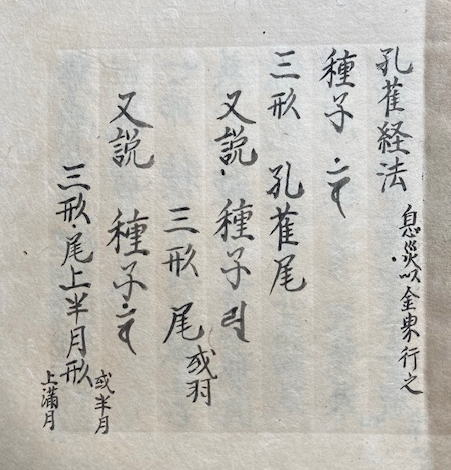 孔雀経法 息災以金東行之
種子
三形 孔雀尾
又説 種子
三形 尾 或羽
又説 種子
三形 尾上半月形
或半月
上満月